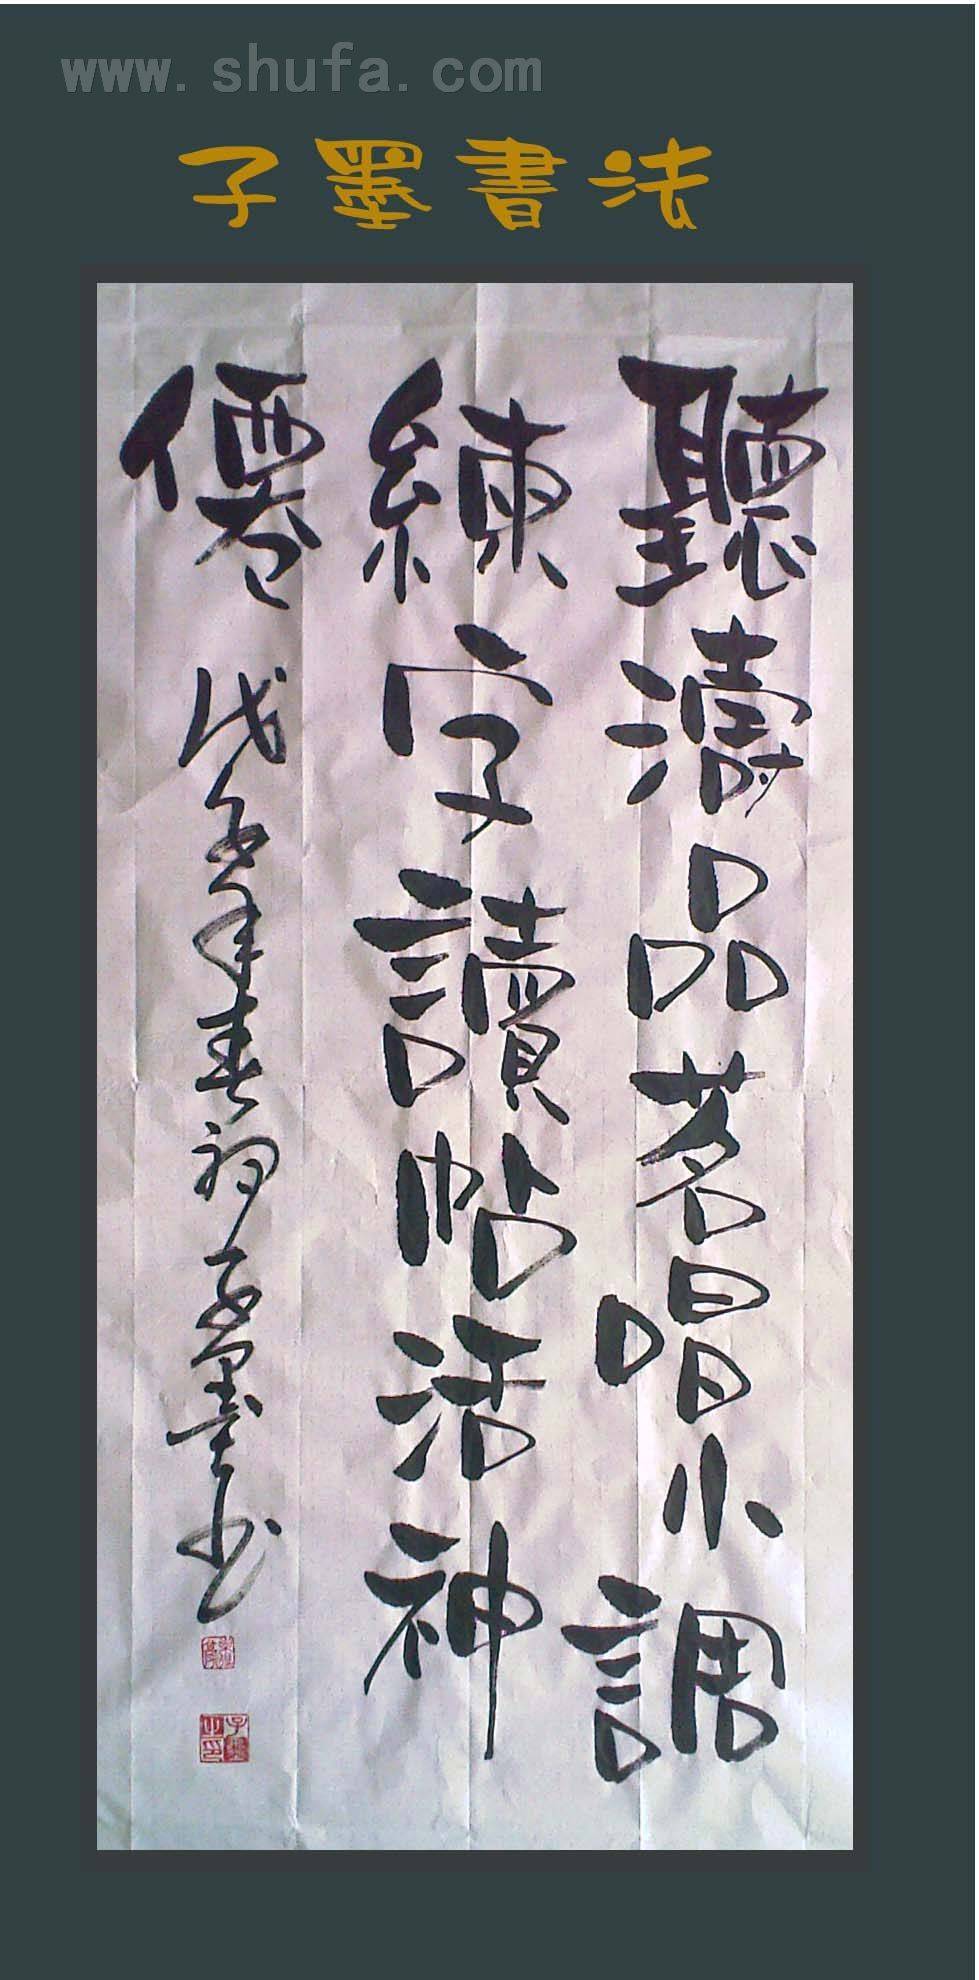 www.shufa.com
子墨書法
聽濤品茗唱小調
練字讀帖活神
僊 戊子年春初子墨书
子墨之印